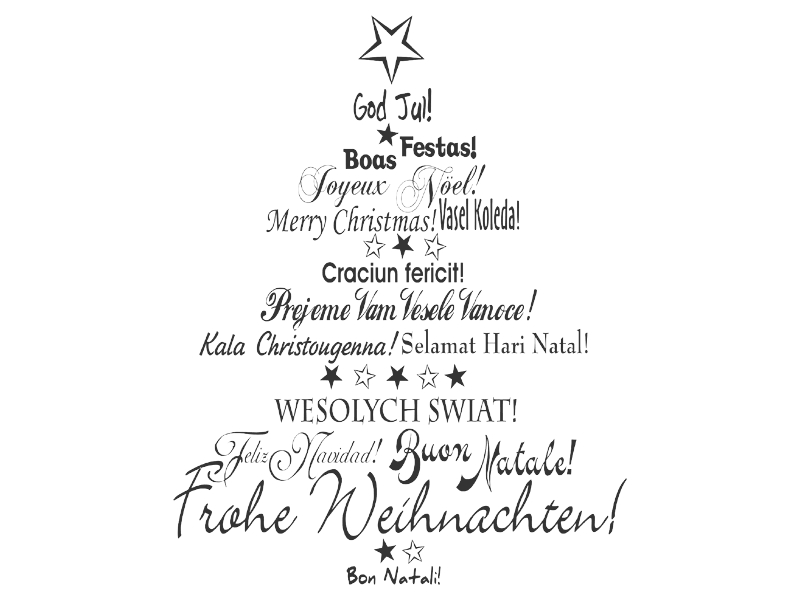 God Jul!
Boas Festas!
Joyeux Nöel!
Merry Christmas! Vasel Koleda!
Craciun fericit!
Prejeme Vam Vesele Vanoce!
Kala Christougenna! Selamat Hari Natal!
WESOLYCH SWIAT!
Feliz Navidad! Buon Natale!
Frohe Weihnachten!
Bon Natali!